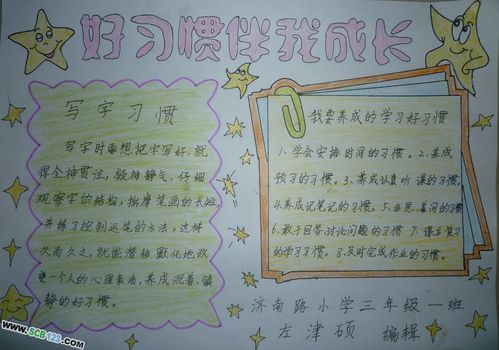 好习惯伴我成长
写字习惯
写字时要想把字写好,就
得全神贯注,凝神静气,仔细
观察字的结构,揣摩笔画的长短,
并练习控制运笔的方法。这样
久而久之,就能潜移默化地改
变一个人的心理素质,养成沉着、镇
静的好习惯。
我要养成的学习好习惯
1、学会安排时间的习惯。2、养成
预习的习惯。3、养成认真听课的习惯。
4、养成记笔记的习惯。5、多思、善问的习惯
6、敢于回答讨论问题的习惯 7、课后复习
的学习习惯。8、及时完成作业的习惯。
济南路小学三年级一班
左津硕 编辑
www.SCB123.com